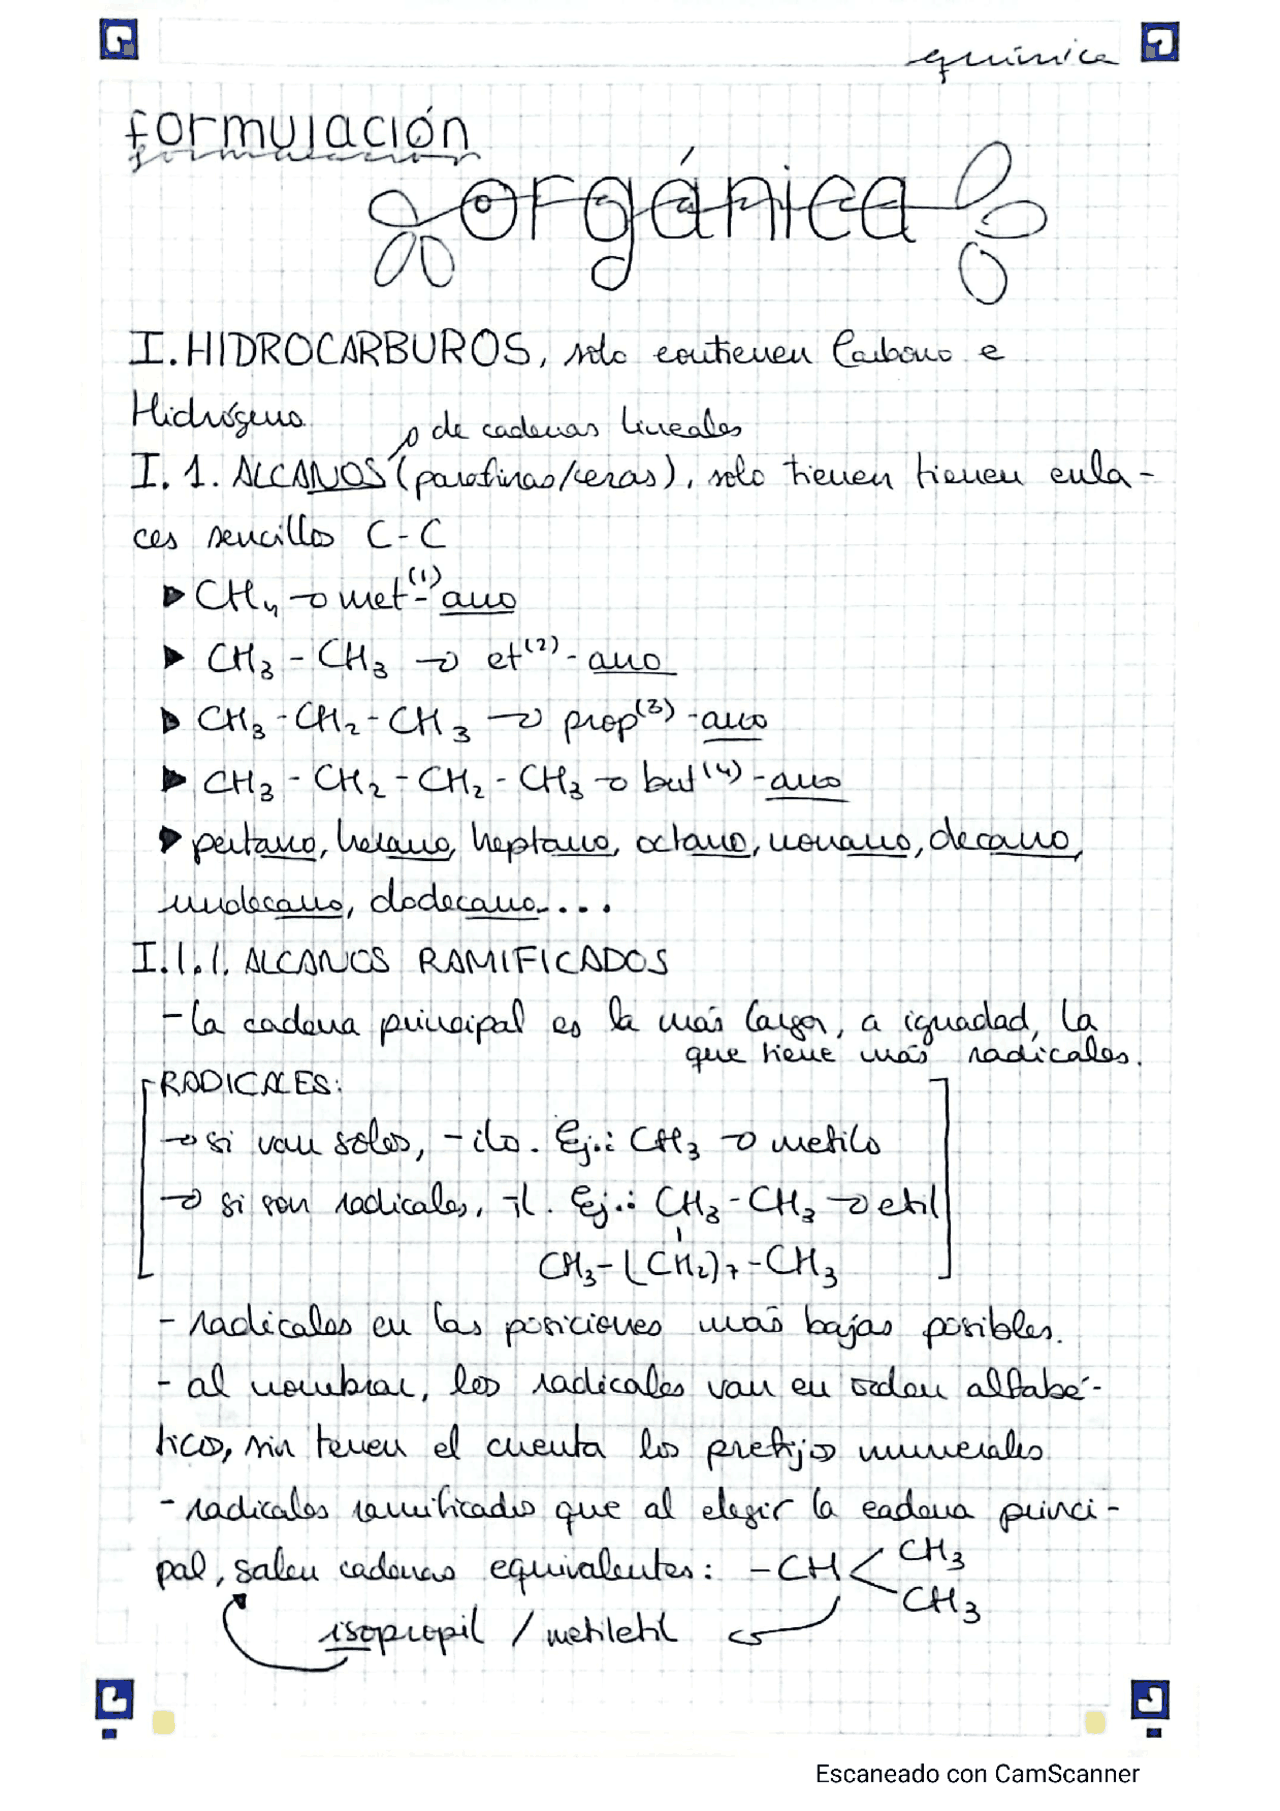 química
formulación
orgánica
I. HIDROCARBUROS, solo contienen Carbono e
Hidrógeno.
→ de cadenas lineales
I. 1. ALCANOS (parafinas/ceras), solo tienen tienen enla-
ces sencillos C-C
▶ CH₄ → met⁽¹⁾-ano
▶ CH₃ - CH₃ → et⁽²⁾-ano
▶ CH₃ - CH₂ - CH₃ → prop⁽³⁾-ano
▶ CH₃ - CH₂ - CH₂ - CH₃ → but⁽⁴⁾-ano
▶ pentano, hexano, heptano, octano, nonano, decano,
undecano, dodecano...
I.1.1. ALCANOS RAMIFICADOS
- la cadena principal es la más larga, a iguadad, la
que tiene más radicales.
RADICALES:
→ si van solos, -ilo. Ej.: CH₃ → metilo
→ si son radicales, -il. Ej.: CH₃-CH₃ → etil
CH₃-(CH₂)₇-CH₃
- radicales en las posiciones más bajas posibles.
- al nombrar, los radicales van en orden alfabé-
ticos, sin tener el cuenta los prefijos numerales.
- radicales ramificados que al elegir la cadena princi-
pal, salen cadenas equivalentes: -CH < CH₃
CH₃
isopropil / metiletil
Escaneado con CamScanner